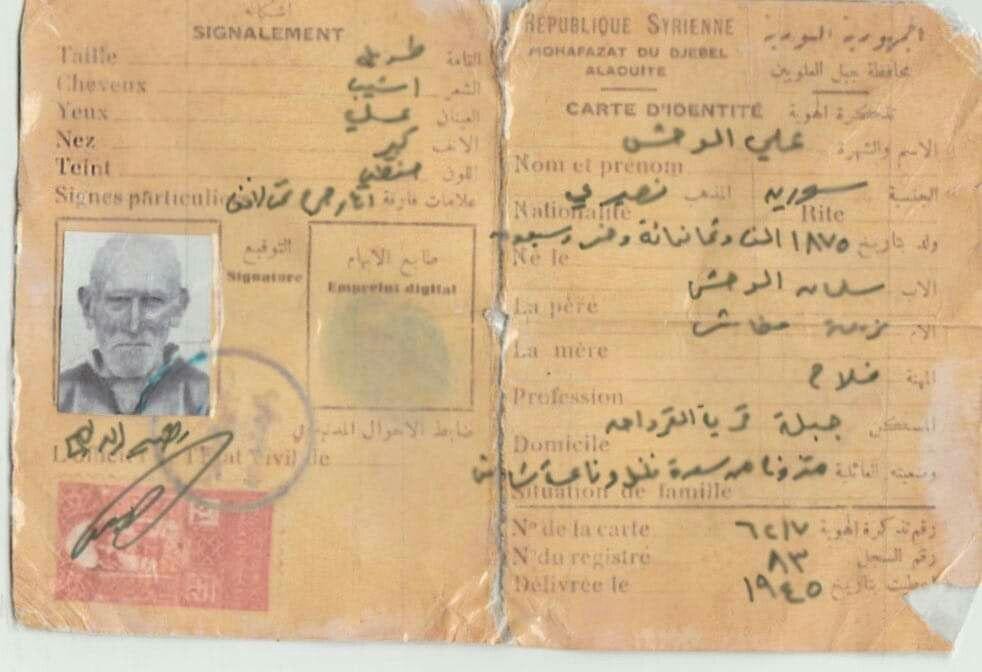 SIGNALEMENT
Taille طويل القامة
Cheveux اشيب الشعر
Yeux عسلي العينان
Nez كبير الانف
Teint حنطي اللون
Signes particuli علامات فارقة
التوقيع
Signature
طابع الابهام
Empreint digital
ضابط الاحوال المدنية
L'officier l'état civil de
RÉPUBLIQUE SYRIENNE الجمهورية السورية
MOHAFAZAT DU DJEBEL ALAOUITE محافظة جبل العلويين
CARTE D'IDENTITÉ تذكرة الهوية
علي الوحش الاسم والشهرة
Nom et prénom
سورية المذهب نصيري الجنسية
Nationalité Rite
١٨٧٥ الف وثمانمائة وخمس وسبعون ولد بتاريخ
Né le
سلمان الوحش الاب
La père
الام
La mère
فلاح المهنة
Profession
جبلة قريا القرداحه المسكن
Domicile
وضعيته العائلية
Situation de famille
Nº de la carte ٦٢١٧ رقم تذكرة الهوية
Nº du registre ٨٣ رقم السجل
Délivrée le ١٩٤٥ اعطيت بتاريخ